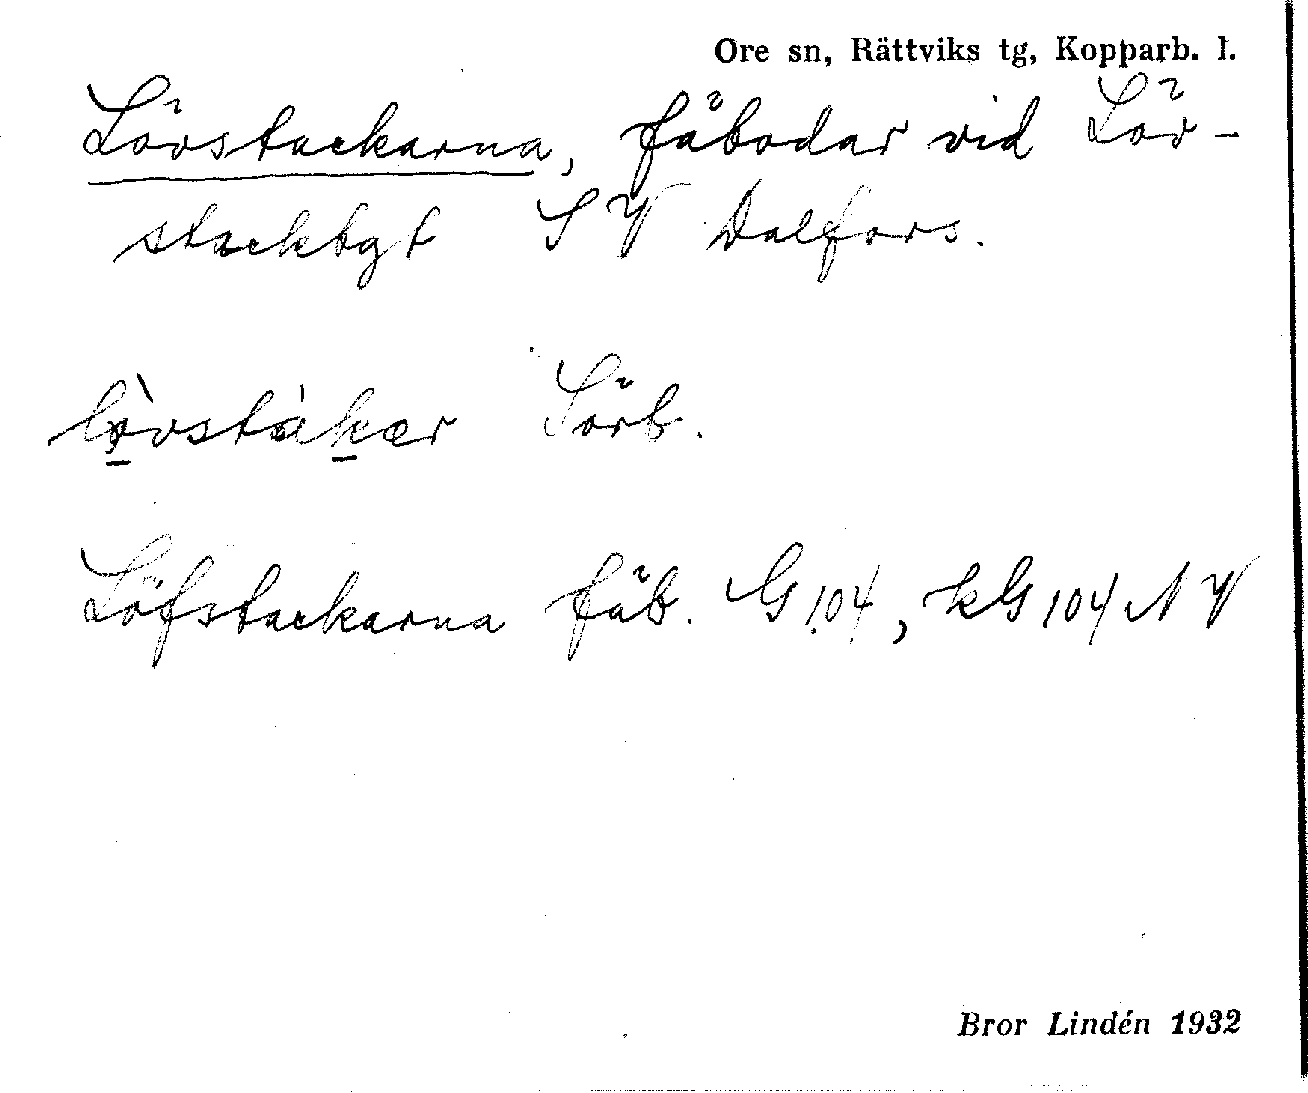 Ore sn, Rättviks tg, Kopparb. l.
Lövstackarna, fäbodar vid Löv-
stacktgt SV Dalfors.
lòvstàkær Sörb.
Löfstackarna fäb. G 104, kG 104 NV
Bror Lindén 1932